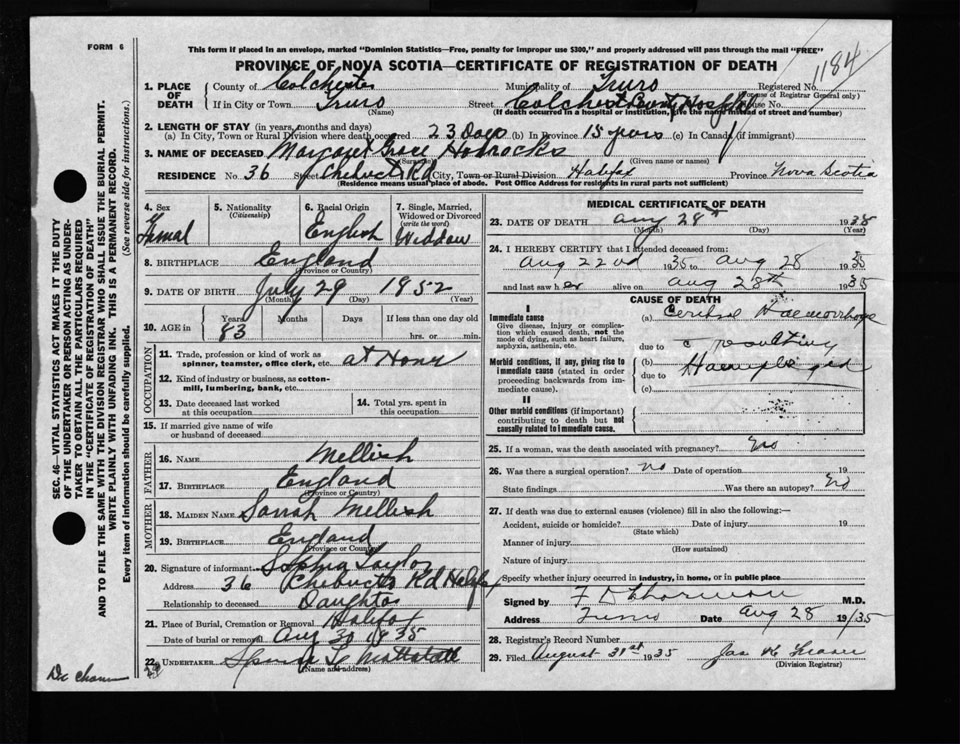 FORM 6
This form if placed in an envelope, marked "Dominion Statistics—Free, penalty for improper use $300," and properly addressed will pass through the mail "FREE"
PROVINCE OF NOVA SCOTIA—CERTIFICATE OF REGISTRATION OF DEATH
1184
1. PLACE OF DEATH
County of Colchester Municipality of Truro Registered No.
(For use of Registrar General only)
If in City or Town Truro Street Colchester County Hospital House No.
(Name) (If death occurred in a hospital or institution, give the name instead of street and number)
2. LENGTH OF STAY (in years, months and days)
(a) In City, Town or Rural Division where death occurred 23 Days (b) In Province 15 years (c) In Canada (if immigrant)
3. NAME OF DECEASED Margaret Grace Horrocks
(Surname) (Given name or names)
RESIDENCE No. 36 Street Chebucto Rd City, Town or Rural Division Halifax Province Nova Scotia
(Residence means usual place of abode. Post Office Address for residents in rural parts not sufficient)
4. Sex Femal
5. Nationality (Citizenship)
6. Racial Origin English
7. Single, Married, Widowed or Divorced (write the word) Widdow
8. BIRTHPLACE England
(Province or Country)
9. DATE OF BIRTH July 29 1852
(Month) (Day) (Year)
10. AGE in Years Months Days If less than one day old
83 hrs. or min.
OCCUPATION
11. Trade, profession or kind of work as spinner, teamster, office clerk, etc. at Home
12. Kind of industry or business, as cotton-mill, lumbering, bank, etc.
13. Date deceased last worked at this occupation
14. Total yrs. spent in this occupation
15. If married give name of wife or husband of deceased
FATHER
16. NAME Mellish
17. BIRTHPLACE England
(Province or Country)
MOTHER
18. MAIDEN NAME Sarah Mellish
19. BIRTHPLACE England
(Province or Country)
20. Signature of informant Sophia Taylor
Address 36 Chebucto Rd Halifax
Relationship to deceased Daughter
21. Place of Burial, Cremation or Removal Halifax
Date of burial or removal Aug 30 1935
22. UNDERTAKER Mattatall
(Name and address)
MEDICAL CERTIFICATE OF DEATH
23. DATE OF DEATH Aug 28th 1935
(Month) (Day) (Year)
24. I HEREBY CERTIFY that I attended deceased from:
Aug 22nd 1935 to Aug 28 1935
and last saw her alive on Aug 28th 1935
CAUSE OF DEATH
I
Immediate cause
Give disease, injury or complication which caused death, not the mode of dying, such as heart failure, asphyxia, asthenia, etc.
(a) Cerebral Haemorrhage
due to c resulting
Morbid conditions, if any, giving rise to immediate cause (stated in order proceeding backwards from immediate cause).
(b) Haemiplegia
due to
(c)
II
Other morbid conditions (if important) contributing to death but not causally related to immediate cause.
25. If a woman, was the death associated with pregnancy? No
26. Was there a surgical operation? no Date of operation 19
State findings Was there an autopsy? No
27. If death was due to external causes (violence) fill in also the following:—
Accident, suicide or homicide? Date of injury 19
(State which)
Manner of injury
(How sustained)
Nature of injury
Specify whether injury occurred in industry, in home, or in public place
Signed by M.D.
Address Truro Date Aug 28 19/35
28. Registrar's Record Number
29. Filed August 31st 1935 Jas
(Division Registrar)
SEC. 46—VITAL STATISTICS ACT MAKES IT THE DUTY
OF THE UNDERTAKER OR PERSON ACTING AS UNDER-
TAKER TO OBTAIN ALL THE PARTICULARS REQUIRED
IN THE "CERTIFICATE OF REGISTRATION OF DEATH"
AND TO FILE THE SAME WITH THE DIVISION REGISTRAR WHO SHALL ISSUE THE BURIAL PERMIT.
WRITE PLAINLY WITH UNFADING INK. THIS IS A PERMANENT RECORD.
Every item of information should be carefully supplied. (See reverse side for instructions.)